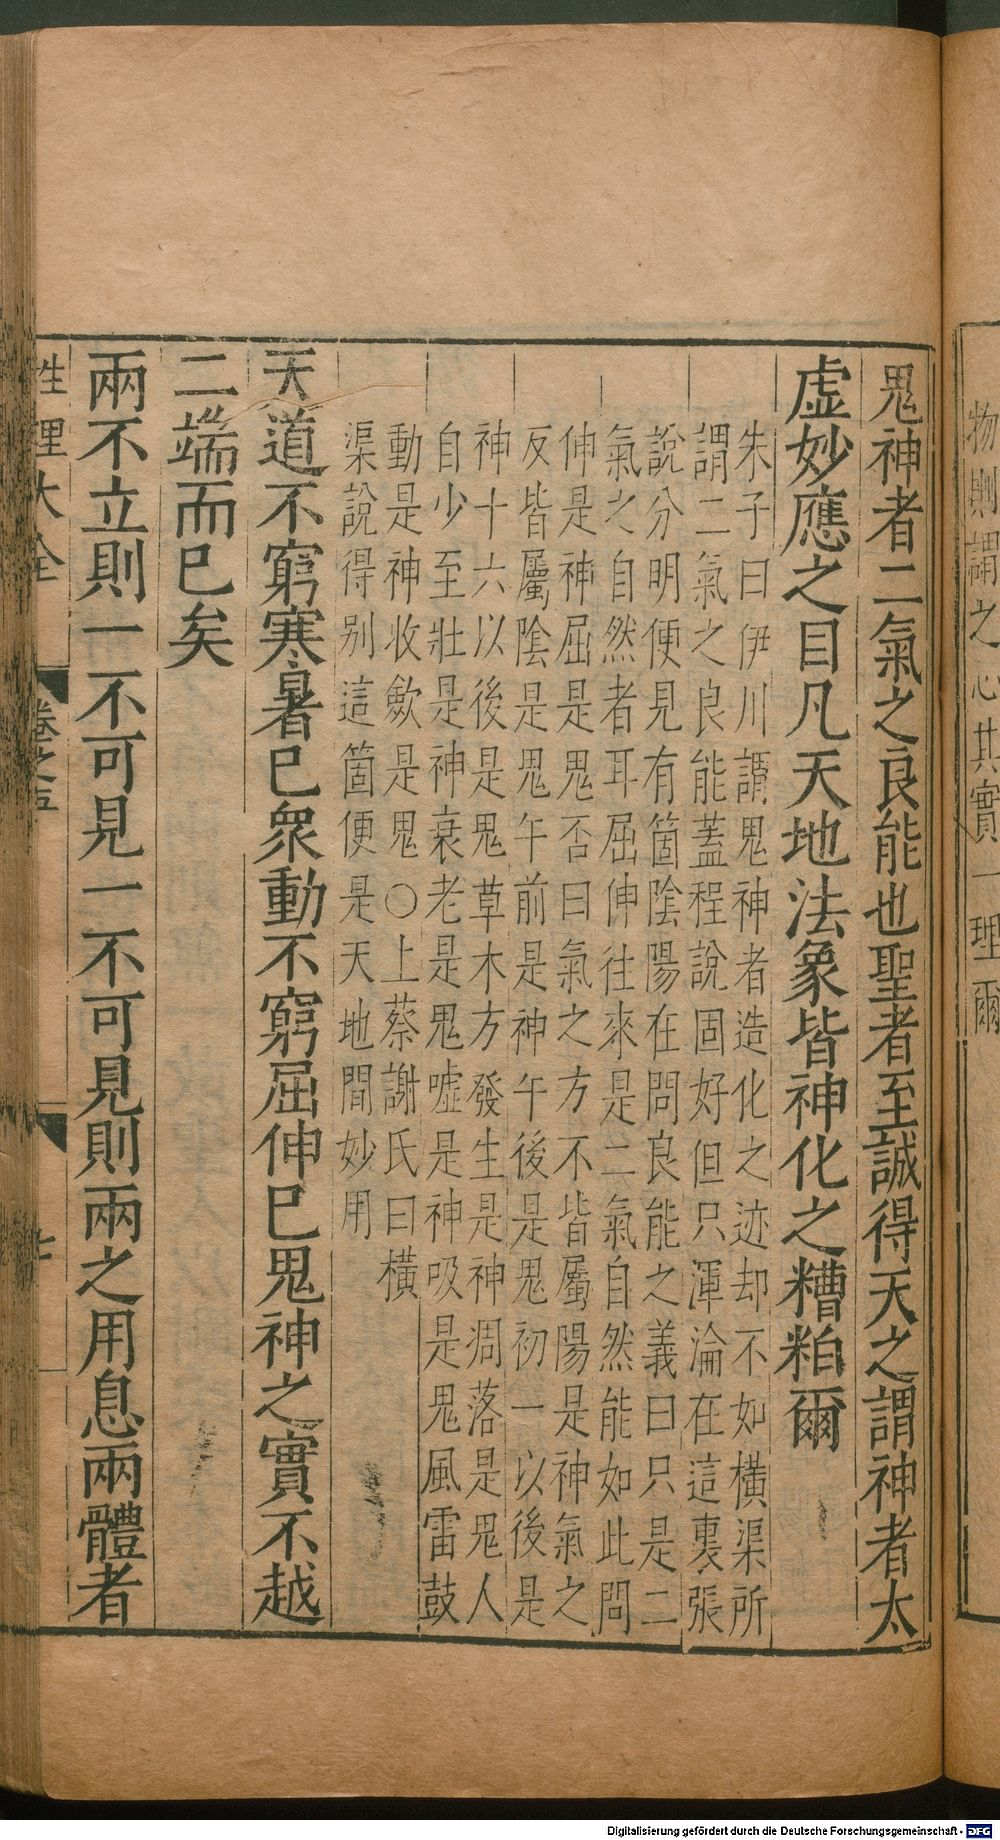 物則謂之心其實一理爾
鬼神者二氣之良能也聖者至誠得天之謂神者太
虛妙應之目凡天地法象皆神化之糟粕爾
朱子曰伊川謂鬼神者造化之迹却不如橫渠所
謂二氣之良能蓋程說固好但只渾淪在這裏張
說分明便見有箇陰陽在問良能之義曰只是二
氣之自然者耳屈伸往來是二氣自然能如此問
伸是神屈是鬼否曰氣之方不皆屬陽是神氣之
反皆屬陰是鬼午前是神午後是鬼初一以後是
神十六以後是鬼草木方發生是神凋落是鬼人
自少至壯是神衰老是鬼噓是神吸是鬼風雷鼓
動是神收斂是鬼○上蔡謝氏曰橫
渠說得别這箇便是天地間妙用
天道不窮寒暑已衆動不窮屈伸已鬼神之實不越
二端而已矣
兩不立則一不可見一不可見則兩之用息兩體者
性理大全 卷之五
Digitalisierung gefördert durch die Deutsche Forschungsgemeinschaft - DFG